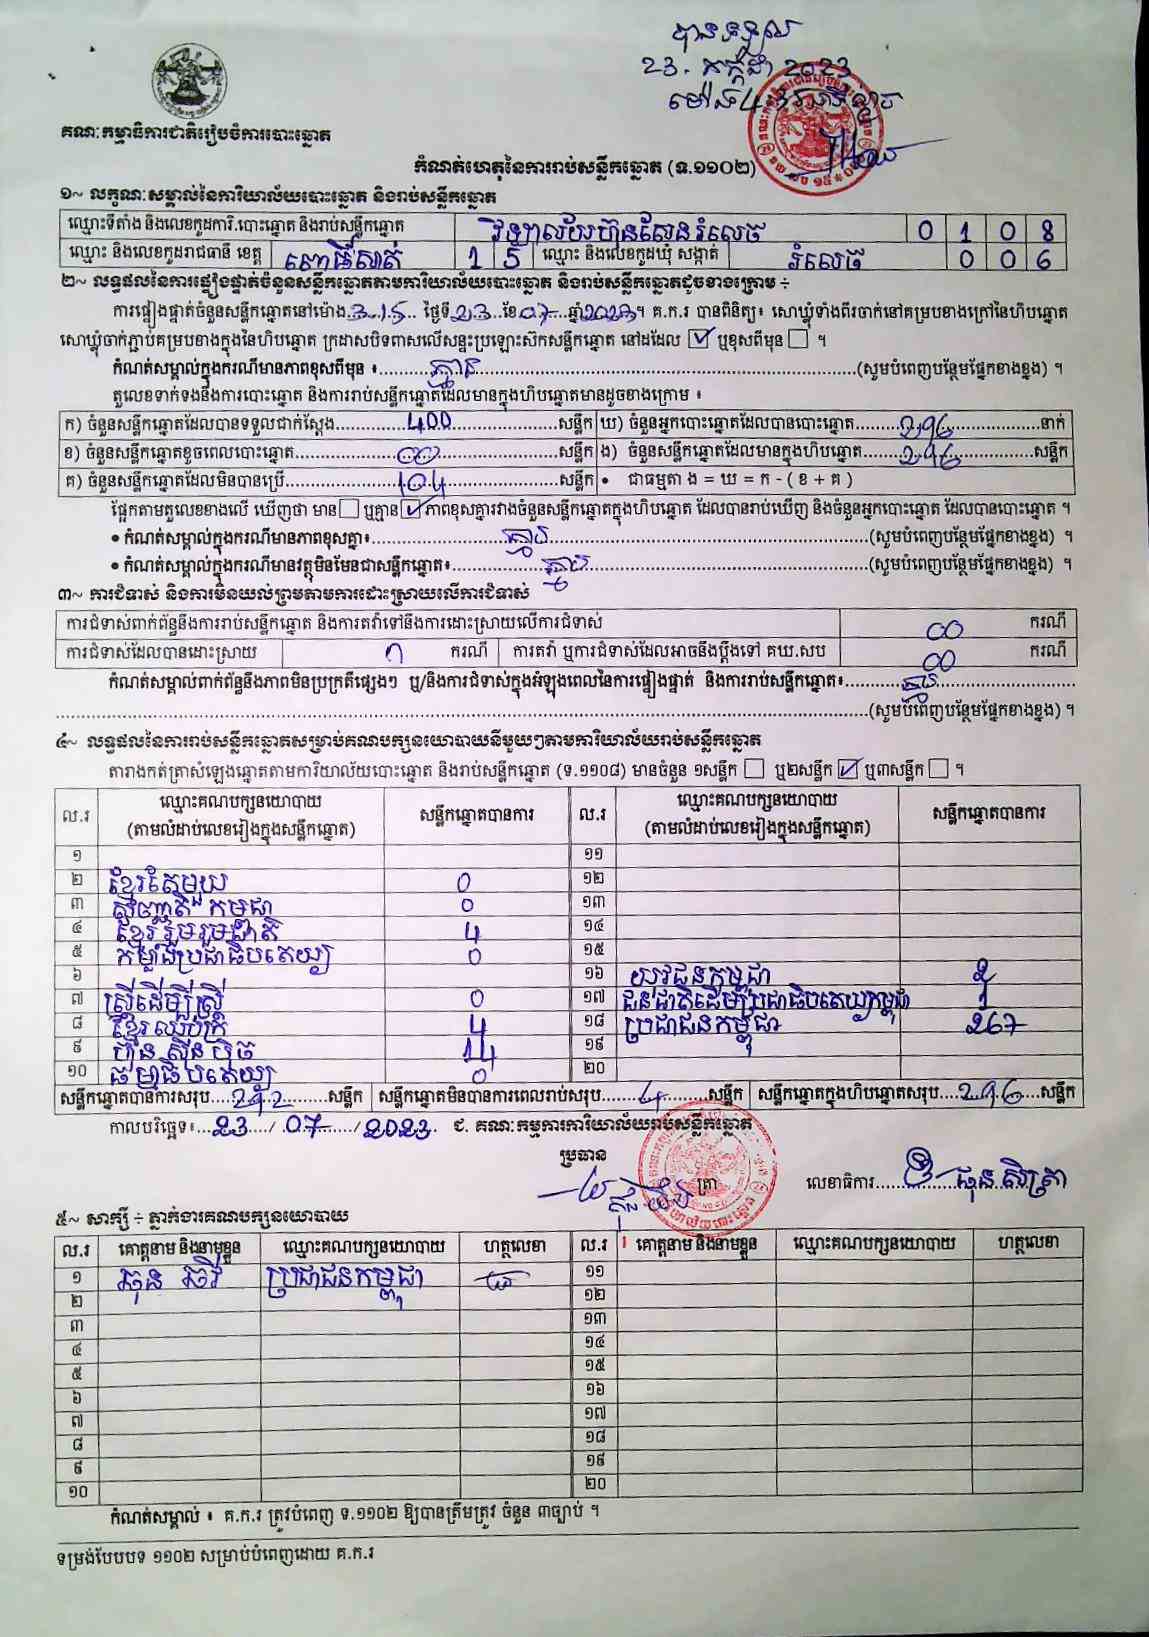 បានទទួល
23. កក្កដា 2023
គណៈកម្មាធិការជាតិរៀបចំការបោះឆ្នោត
កំណត់ហេតុនៃការរាប់សន្លឹកឆ្នោត (ទ.១១០២)
១~ លក្ខណៈសម្គាល់នៃការិយាល័យបោះឆ្នោត និងរាប់សន្លឹកឆ្នោត
ឈ្មោះទីតាំង និងលេខកូដការិ.បោះឆ្នោត និងរាប់សន្លឹកឆ្នោត វិទ្យាល័យហ៊ុនសែនរំលេច 0 1 0 8
ឈ្មោះ និងលេខកូដរាជធានី ខេត្ត ពោធិ៍សាត់ 1 5 ឈ្មោះ និងលេខកូដឃុំ សង្កាត់ រំលេច 0 0 6
២~ លទ្ធផលនៃការផ្ទៀងផ្ទាត់ចំនួនសន្លឹកឆ្នោតតាមការិយាល័យបោះឆ្នោត និងរាប់សន្លឹកឆ្នោតដូចខាងក្រោម ÷
ការផ្ទៀងផ្ទាត់ចំនួនសន្លឹកឆ្នោតនៅម៉ោង 3:15 ថ្ងៃទី 23 ខែ 07 ឆ្នាំ 2023។ គ.ក.រ បានពិនិត្យ៖ សោឃ្លុំទាំងពីរចាក់នៅគម្របខាងក្រៅនៃហិបឆ្នោត
សោឃ្លុំចាក់ភ្ជាប់គម្របខាងក្នុងនៃហិបឆ្នោត ក្រដាសបិទពាសលើសន្ទះប្រឡោះស៊កសន្លឹកឆ្នោត នៅដដែល ✓ ឬខុសពីមុន ។
កំណត់សម្គាល់ក្នុងករណីមានភាពខុសពីមុន ៖ គ្មាន (សូមបំពេញបន្ថែមផ្នែកខាងខ្នង) ។
តួលេខទាក់ទងនឹងការបោះឆ្នោត និងការរាប់សន្លឹកឆ្នោតដែលមានក្នុងហិបឆ្នោតមានដូចខាងក្រោម ៖
ក) ចំនួនសន្លឹកឆ្នោតដែលបានទទួលជាក់ស្តែង 400 សន្លឹក ឃ) ចំនួនអ្នកបោះឆ្នោតដែលបានបោះឆ្នោត 296 នាក់
ខ) ចំនួនសន្លឹកឆ្នោតខូចពេលបោះឆ្នោត 00 សន្លឹក ង) ចំនួនសន្លឹកឆ្នោតដែលមានក្នុងហិបឆ្នោត 296 សន្លឹក
គ) ចំនួនសន្លឹកឆ្នោតដែលមិនបានប្រើ 104 សន្លឹក • ជាធម្មតា ង = ឃ = ក - ( ខ + គ )
ផ្អែកតាមតួលេខខាងលើ ឃើញថា មាន ឬគ្មាន ✓ ភាពខុសគ្នារវាងចំនួនសន្លឹកឆ្នោតក្នុងហិបឆ្នោត ដែលបានរាប់ឃើញ និងចំនួនអ្នកបោះឆ្នោត ដែលបានបោះឆ្នោត ។
• កំណត់សម្គាល់ក្នុងករណីមានភាពខុសគ្នា៖ គ្មាន (សូមបំពេញបន្ថែមផ្នែកខាងខ្នង) ។
• កំណត់សម្គាល់ក្នុងករណីមានវត្ថុមិនមែនជាសន្លឹកឆ្នោត៖ គ្មាន (សូមបំពេញបន្ថែមផ្នែកខាងខ្នង) ។
៣~ ការជំទាស់ និងការមិនយល់ព្រមតាមការដោះស្រាយលើការជំទាស់
ការជំទាស់ពាក់ព័ន្ធនឹងការរាប់សន្លឹកឆ្នោត និងការតវ៉ាទៅនឹងការដោះស្រាយលើការជំទាស់ 00 ករណី
ការជំទាស់ដែលបានដោះស្រាយ ករណី ការតវ៉ា ឬការជំទាស់ដែលអាចនឹងប្តឹងទៅ គឃ.សប 00 ករណី
កំណត់សម្គាល់ពាក់ព័ន្ធនឹងភាពមិនប្រក្រតីផ្សេងៗ ឬ/និងការជំទាស់ក្នុងអំឡុងពេលនៃការផ្ទៀងផ្ទាត់ និងការរាប់សន្លឹកឆ្នោត៖ គ្មាន
(សូមបំពេញបន្ថែមផ្នែកខាងខ្នង) ។
៤~ លទ្ធផលនៃការរាប់សន្លឹកឆ្នោតសម្រាប់គណបក្សនយោបាយនីមួយៗតាមការិយាល័យរាប់សន្លឹកឆ្នោត
តារាងកត់ត្រាសំឡេងឆ្នោតតាមការិយាល័យបោះឆ្នោត និងរាប់សន្លឹកឆ្នោត (ទ.១១០៨) មានចំនួន ១សន្លឹក ឬ២សន្លឹក ✓ ឬ៣សន្លឹក ។
ល.រ ឈ្មោះគណបក្សនយោបាយ (តាមលំដាប់លេខរៀងក្នុងសន្លឹកឆ្នោត) សន្លឹកឆ្នោតបានការ ល.រ ឈ្មោះគណបក្សនយោបាយ (តាមលំដាប់លេខរៀងក្នុងសន្លឹកឆ្នោត) សន្លឹកឆ្នោតបានការ
១ ១១
២ ខ្មែរតែមួយ 0 ១២
៣ សញ្ជាតិ កម្ពុជា 0 ១៣
៤ ខ្មែររួបរួមជាតិ 4 ១៤
៥ កម្លាំងប្រជាធិបតេយ្យ 0 ១៥
៦ ១៦ យុវជនកម្ពុជា
៧ ស្ត្រីដើម្បីស្ត្រី 0 ១៧ ជនជាតិដើមប្រជាធិបតេយ្យកម្ពុជា
៨ ខ្មែរឈប់ក្រ 4 ១៨ ប្រជាជនកម្ពុជា 267
៩ ហ៊្វុនស៊ិនប៉ិច 14 ១៩
១០ ធម្មាធិបតេយ្យ 0 ២០
សន្លឹកឆ្នោតបានការសរុប 292 សន្លឹក សន្លឹកឆ្នោតមិនបានការពេលរាប់សរុប 4 សន្លឹក សន្លឹកឆ្នោតក្នុងហិបឆ្នោតសរុប 296 សន្លឹក
កាលបរិច្ឆេទ៖ 23 / 07 / 2023 ជ. គណៈកម្មការការិយាល័យរាប់សន្លឹកឆ្នោត
ប្រធាន
ត្រា លេខាធិការ
៥~ សាក្សី ÷ ភ្នាក់ងារគណបក្សនយោបាយ
ល.រ គោត្តនាម និងនាមខ្លួន ឈ្មោះគណបក្សនយោបាយ ហត្ថលេខា ល.រ គោត្តនាម និងនាមខ្លួន ឈ្មោះគណបក្សនយោបាយ ហត្ថលេខា
១ ប្រជាជនកម្ពុជា ១១
២ ១២
៣ ១៣
៤ ១៤
៥ ១៥
៦ ១៦
៧ ១៧
៨ ១៨
៩ ១៩
១០ ២០
កំណត់សម្គាល់ ៖ គ.ក.រ ត្រូវបំពេញ ទ.១១០២ ឱ្យបានត្រឹមត្រូវ ចំនួន ៣ច្បាប់ ។
ទម្រង់បែបបទ ១១០២ សម្រាប់បំពេញដោយ គ.ក.រ